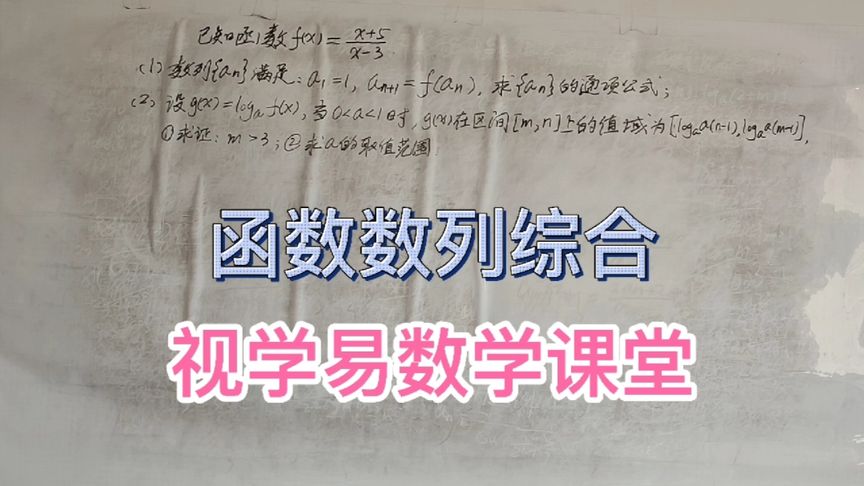 已知函数f(x)=\frac{x+5}{x-3}
(1)数列{a_n}满足:a_1=1,a_{n+1}=f(a_n),求{a_n}的通项公式;
(2)设g(x)=log_a f(x),当0<a<1时,g(x)在区间[m,n]上的值域为[log_a a(n-1),log_a a(m-1)],
①求证:m>3;②求a的取值范围.
函数数列综合
视学易数学课堂